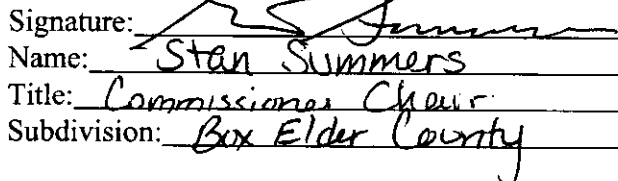 Signature:
Name: Stan Summers
Title: Commissioner Chair
Subdivision: Box Elder County